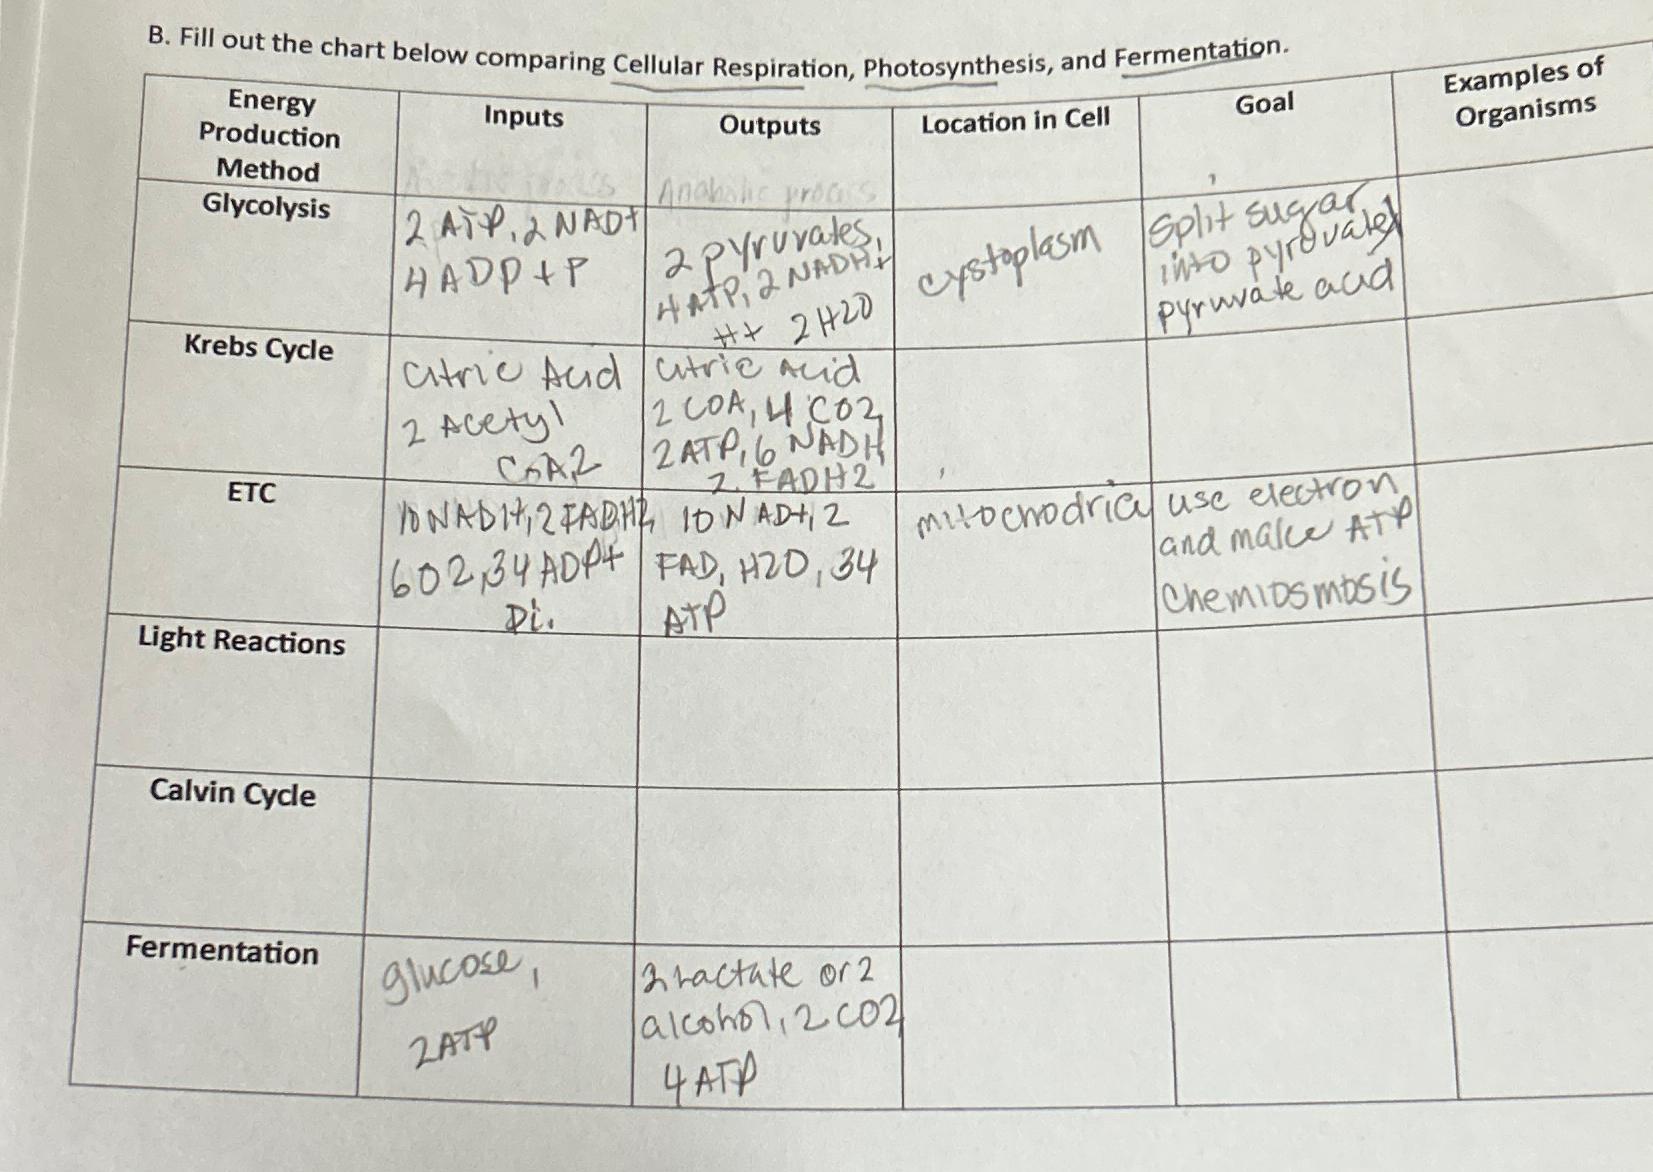 B. Fill out the chart below comparing Cellular Respiration, Photosynthesis, and Fermentation.
Energy
Production
Method
Inputs
Outputs
Location in Cell
Goal
Examples of
Organisms
Anabolic process
Glycolysis
2 ATP, 2 NAD+
4 ADP + P
2 pyruvates,
4 ATP, 2 NADH+
H+ 2H2O
cystoplasm
Split sugar
into pyrovate
pyruvate acid
Krebs Cycle
Citric Acid
2 Acetyl
CoA,2
Citric Acid
2 COA, 4 CO2
2 ATP, 6 NADH
2 FADH2
ETC
10 NADH+, 2 FADH2
6O2, 34 ADP+
Pi.
10 NAD+, 2
FAD, H2O, 34
ATP
mitochodria
use electron
and make ATP
Chemiosmosis
Light Reactions
Calvin Cycle
Fermentation
glucose,
2ATP
2 Lactate or 2
alcohol, 2 CO2
4 ATP